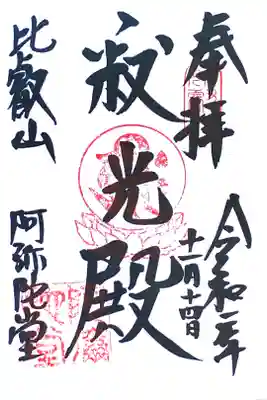 奉拝
令和元年
十一月十四日
寂光殿
比叡山
阿弥陀堂